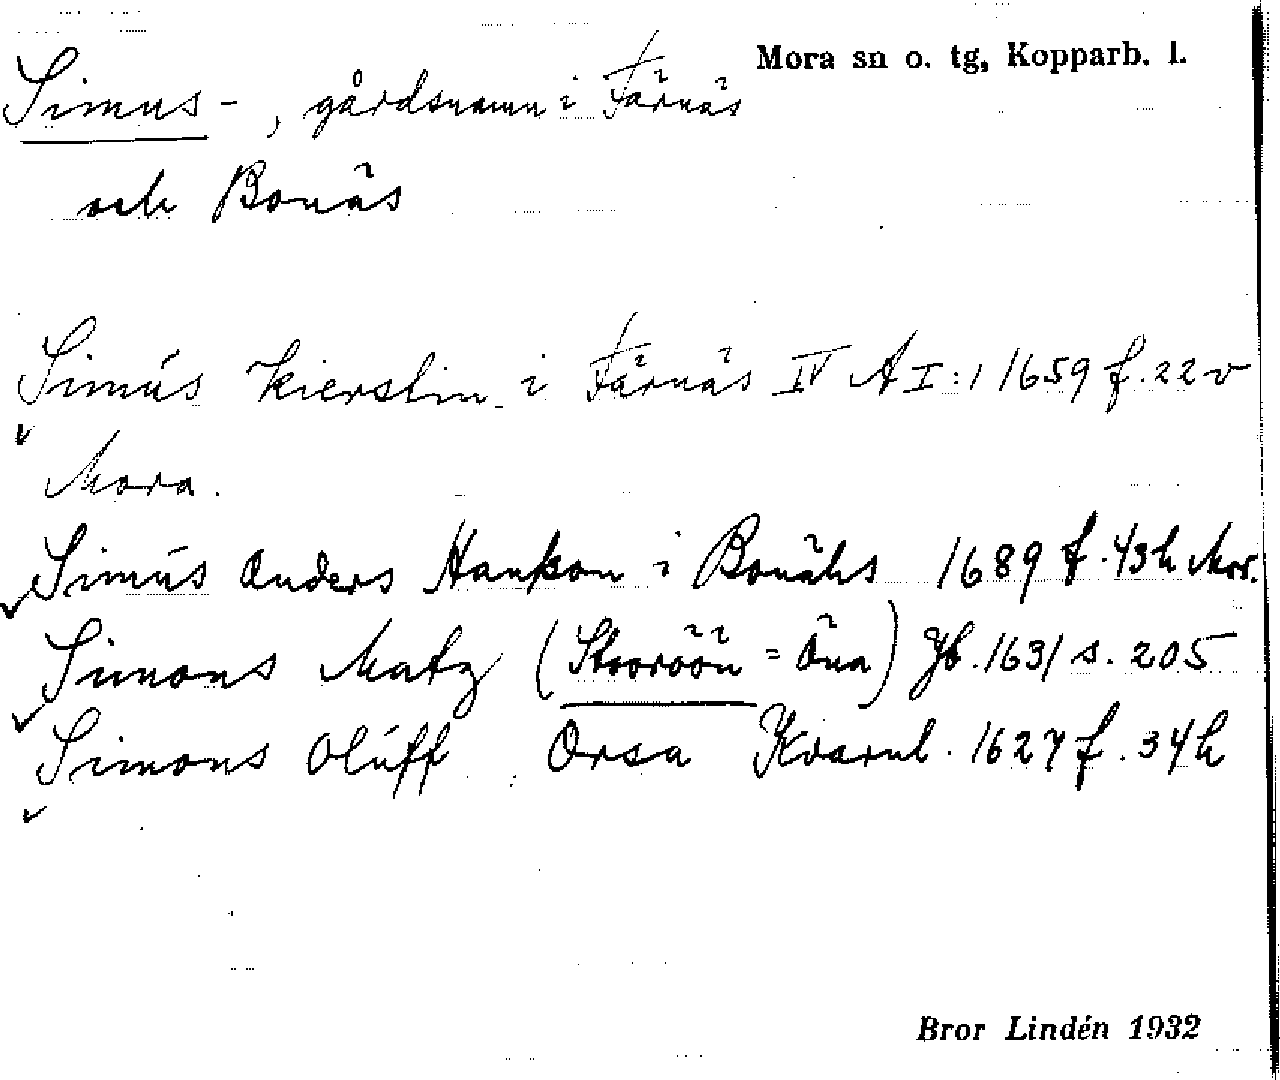 Mora sn o. tg, Kopparb. l.
Simus-, gårdsnamn i Färnäs
och Bonäs
Simús Kierstin i Färnäs IV A I:1 1659 f. 22 v
Mora.
Simús Anders Hanßon i Bonähs 1689 f. 43 h Mor.
Simons Matz (Stooröön = Öna) Jb. 1631 s. 205
Simons Olúff Orsa Kvarnl. 1627 f. 34 h
Bror Lindén 1932